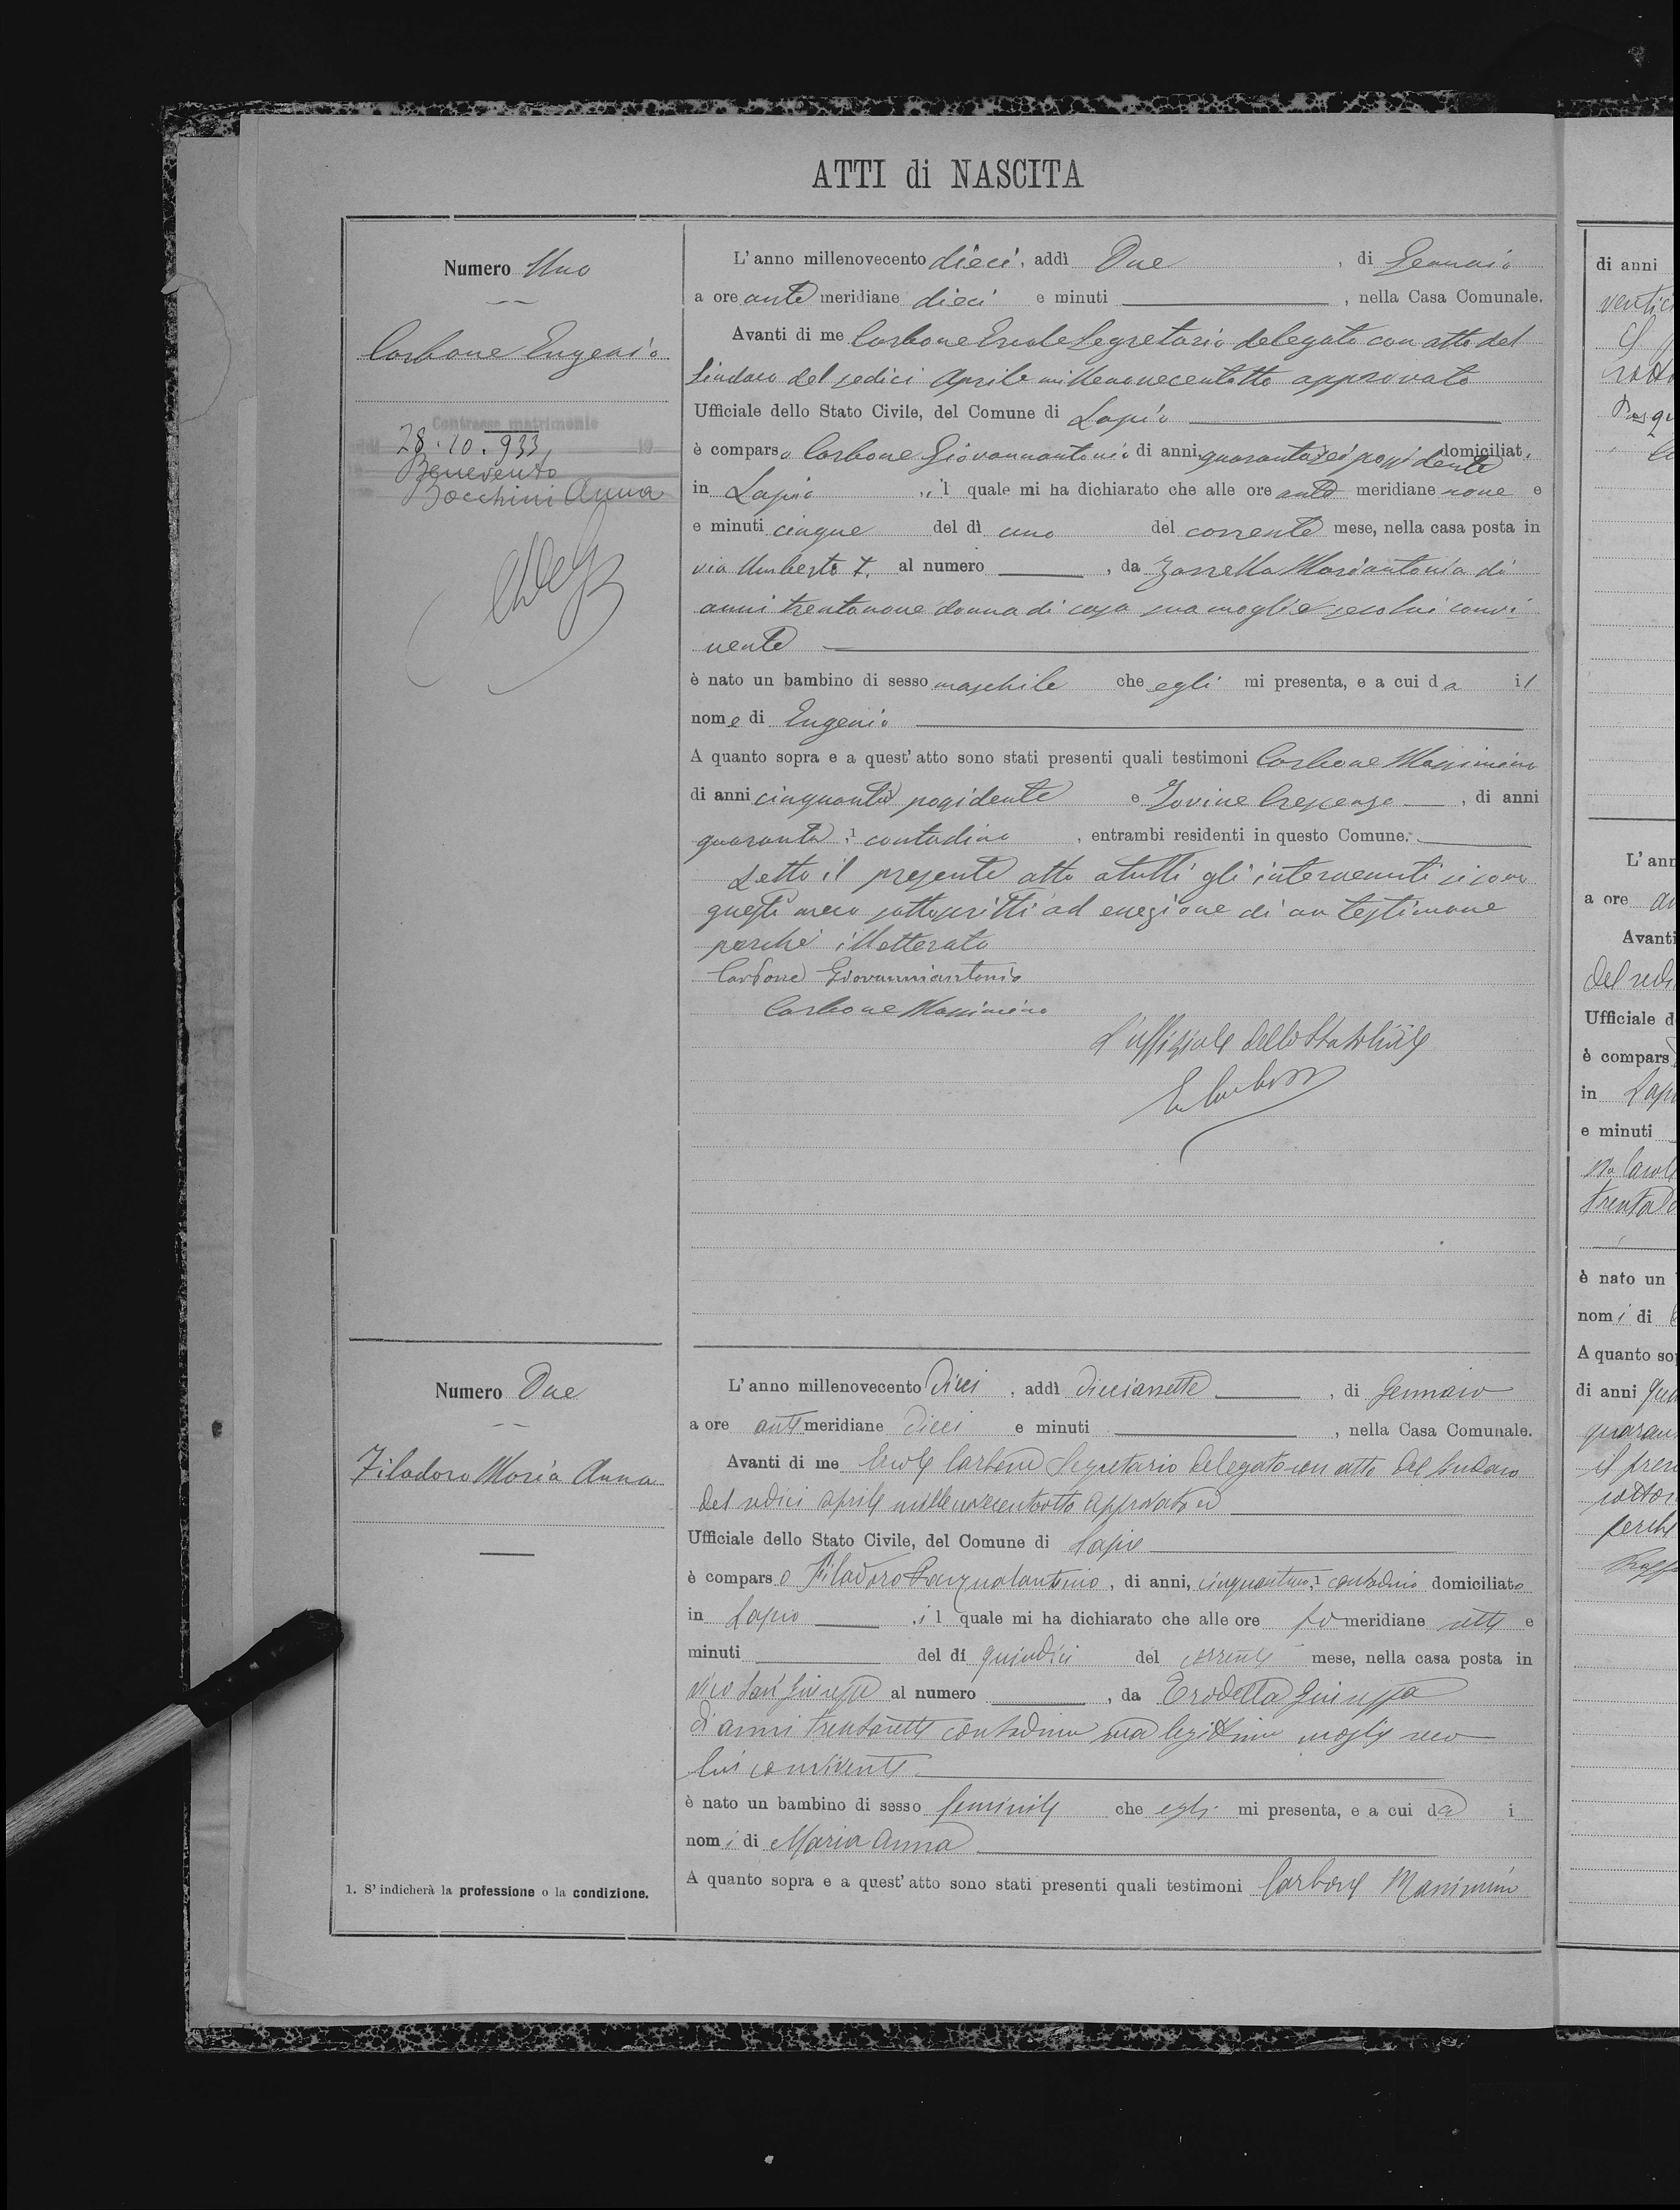 ATTI di NASCITA
Numero Uno
Carbone Eugenio
Contrasse matrimonio
28.10.933
19
Benevento
Bocchini Anna
L'anno millenovecento dieci, addì Due, di Gennaio
a ore ante meridiane dieci e minuti, nella Casa Comunale.
Avanti di me Carbone Ercole Segretario delegato con atto del
Sindaco del sedici Aprile millenovecentotto approvato
Ufficiale dello Stato Civile, del Comune di Lapio
è comparso Carbone Giovannantonio di anni, quarantasei possidente domiciliat.
in Lapio, il quale mi ha dichiarato che alle ore ante meridiane nove e
e minuti cinque del dì uno del corrente mese, nella casa posta in
via Umberto I. al numero, da Zarrella Mariantonia di
anni trentanove donna di casa sua moglie secolui convi-
vente
è nato un bambino di sesso maschile che egli mi presenta, e a cui da il
nome di Eugenio
A quanto sopra e a quest'atto sono stati presenti quali testimoni Carbone Massimino
di anni cinquanta possidente e Iovine Crescenzo, di anni
quaranta, 1 contadino, entrambi residenti in questo Comune.
Letto il presente atto a tutti gli intervenuti si sono
questi meco sottoscritti ad eccezione di un testimone
perché illetterato
Carbone Giovanniantonio
Carbone Massimino
L'uffiziale dello Stato Civile
E. Carbone
Numero Due
Filadoro Maria Anna
L'anno millenovecento dieci, addì diciassette, di Gennaio
a ore ante meridiane dieci e minuti, nella Casa Comunale.
Avanti di me Ercole Carbone Segretario delegato con atto del Sindaco
del sedici aprile millenovecentotto approvato
Ufficiale dello Stato Civile, del Comune di Lapio
è comparso Filadoro Pasqualantonio, di anni, 1 contadino domiciliato
in Lapio, il quale mi ha dichiarato che alle ore po meridiane sette e
minuti del dì quindici del corrente mese, nella casa posta in
vico San Giuseppe al numero, da Giuseppa
di anni trentasette contadina sua legittima moglie seco
lui convivente
è nato un bambino di sesso feminile che egli mi presenta, e a cui da i
nomi di Maria Anna
A quanto sopra e a quest'atto sono stati presenti quali testimoni Carbone Massimino
1. S'indicherà la professione o la condizione.
di anni
L'ann
a ore
Avanti
Ufficiale d
è compars
in Lapi
e minuti
è nato un
nomi di
A quanto sop
di anni